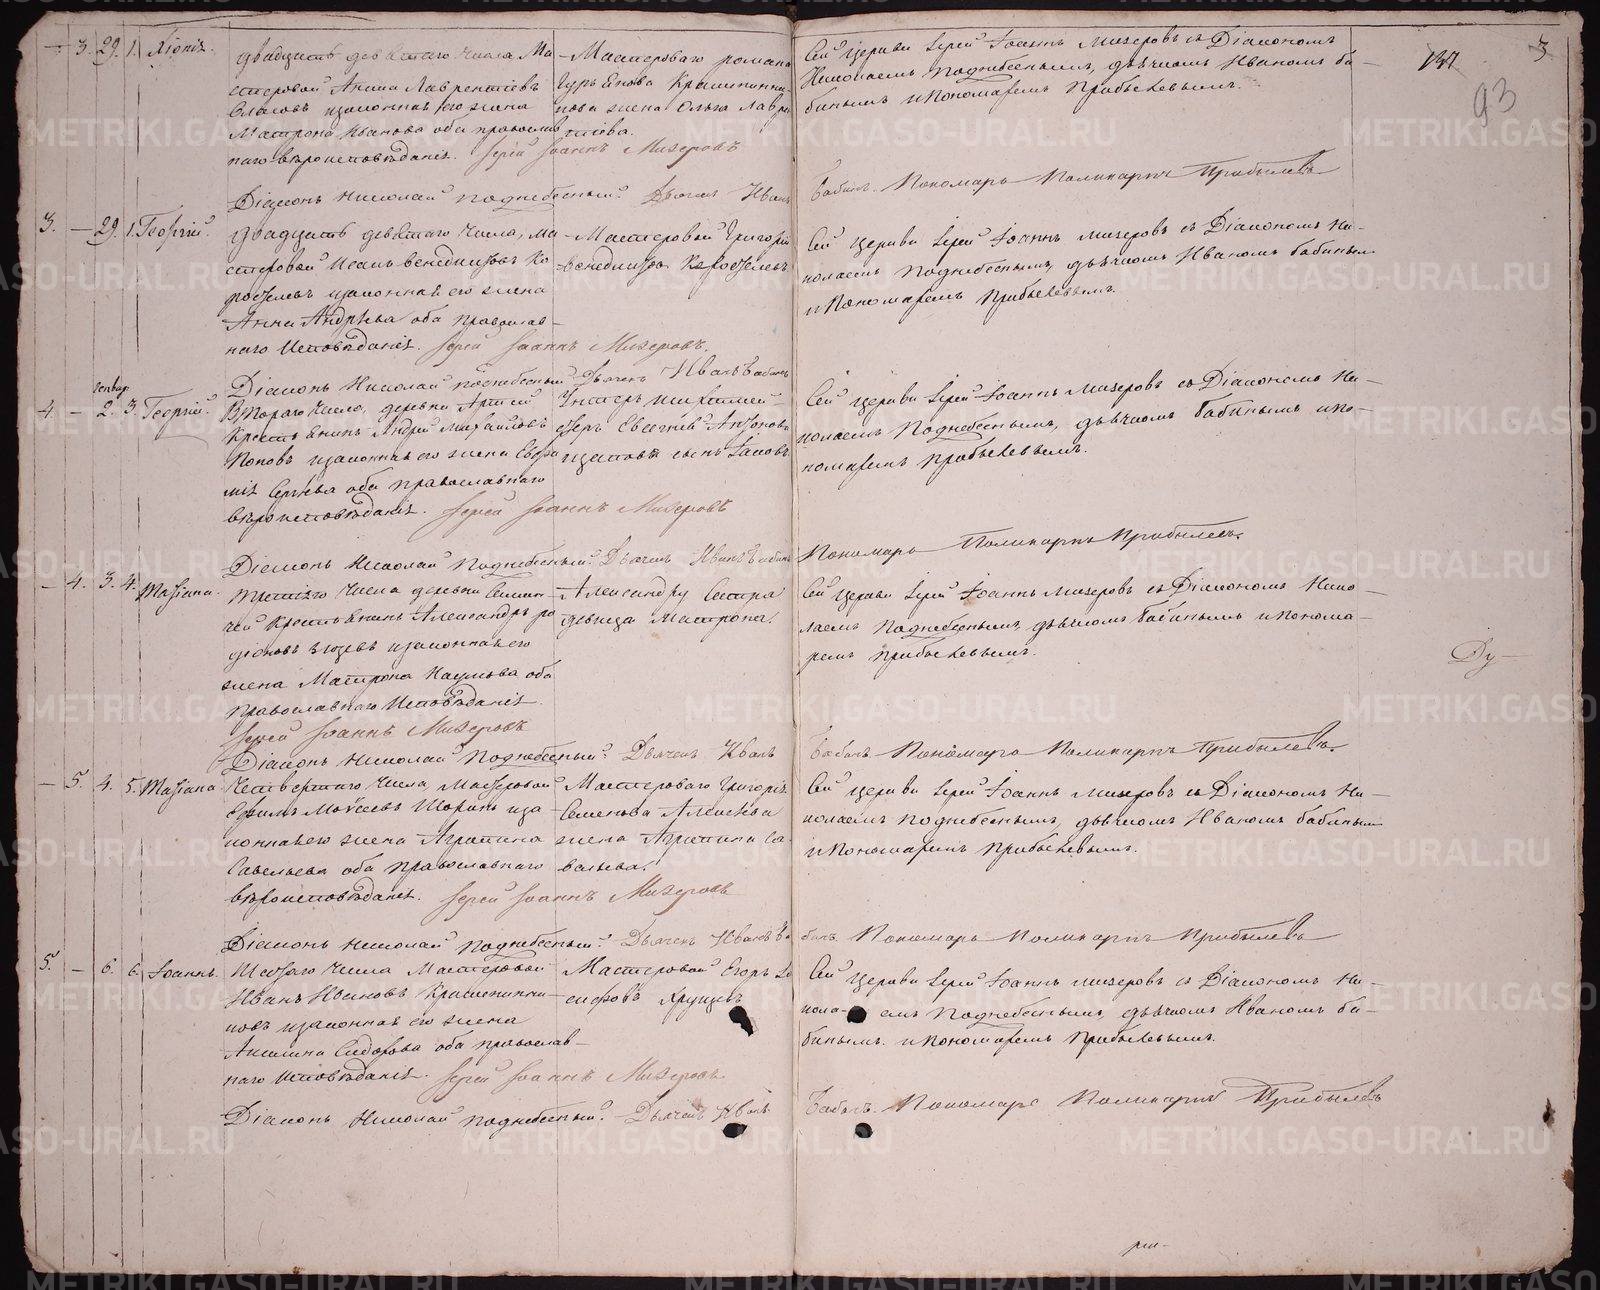 3. 29. 1. Ксенія.
двадцать девятаго числа Ма-
стеровой Акима Лаврентіевъ
законная его жена
Матрона Иванова оба православ
наго вѣроисповѣданія. Іерей Іоаннъ Мизеровъ
Мастероваго романа
жена Ольга Лаврен
тіева.
Сей Церкви Іерей Іоаннъ Мизеровъ съ Діакономъ
Николаемъ Поднебеснымъ, дьячкомъ Иваномъ Ба-
бинымъ и Пономаремъ Прибылевымъ.
137
3
93
Діаконъ Николай Поднебесный. Дьячекъ Иванъ
Бабинъ. Пономарь Поликарпъ Прибылевъ
3. — 29. 1. Георгій.
двадцать девятаго числа, Ма-
стеровой Исакъ Венедиктовъ Ко
законная его жена
Анна Андрѣева оба православ-
наго Исповѣданія. Іерей Іоаннъ Мизеровъ.
Мастеровой Григорій
Венедиктовъ
Сей Церкви Іерей Іоаннъ Мизеровъ съ Діакономъ Ни-
колаемъ Поднебеснымъ, дьячкомъ Иваномъ Бабинымъ
и Пономаремъ Прибылевымъ.
Діаконъ Николай Поднебесный Дьячекъ Иванъ Бабинъ
генвар
4. — 2. 3. Георгій.
Втораго числа, деревни Артей
Крестьянинъ Андрей Михайловъ
Поповъ законная его жена Евфи
мія Сергѣева оба Православнаго
вѣроисповѣданія. Іерей Іоаннъ Мизеровъ
Унтеръ Шихтмей-
стеръ Евгеній Антоновъ
сынъ
Сей Церкви Іерей Іоаннъ Мизеровъ съ Діакономъ Ни-
колаемъ Поднебеснымъ, дьячкомъ Бабинымъ и По-
номаремъ Прибылевымъ.
Діаконъ Николай Поднебесный. Дьячекъ Иванъ Бабинъ
Пономарь Поликарпъ Прибылевъ.
— 4. 3. 4. Маріана.
третьяго числа деревни
Крестьянинъ Александръ ро
діоновъ законная его
жена Матрона Наумова оба
Православнаго Исповѣданія.
Іерей Іоаннъ Мизеровъ
Александру Сестра
девица Матрона.
Сей Церкви Іерей Іоаннъ Мизеровъ съ Діакономъ Нико-
лаемъ Поднебеснымъ, дьячкомъ Бабинымъ и Понома-
ремъ Прибылевымъ.
Діаконъ Николай Поднебесный. Дьячекъ Иванъ
Бабинъ. Пономарь Поликарпъ Прибылевъ.
— 5. 4. 5. Маріана
Четвертаго числа, Мастеровой
Ефимъ Моѵсеевъ Шоринъ за-
конная его жена Агрипина
Савельева оба Православнаго
вѣроисповѣданія. Іерей Іоаннъ Мизеровъ
Мастероваго Григорія
Семенова Алексѣева
жена Агрипина Са
вельева.
Сей Церкви Іерей Іоаннъ Мизеровъ съ Діакономъ Ни-
колаемъ Поднебеснымъ, дьячкомъ Иваномъ Бабинымъ
и Пономаремъ Прибылевымъ.
Діаконъ Николай Поднебесный. Дьячекъ Иванъ Ба
бинъ. Пономарь Поликарпъ Прибылевъ
5. — 6. 6. Іоаннъ.
Шестаго числа Мастеровой
Иванъ Ивановъ Крашенинни-
ковъ законная его жена
Акилина Сидорова оба православ-
наго исповѣданія. Іерей Іоаннъ Мизеровъ
Мастеровой Егоръ
Хрущевъ
Сей Церкви Іерей Іоаннъ Мизеровъ съ Діакономъ Ни-
кола- емъ Поднебеснымъ, дьячкомъ Иваномъ Ба-
бинымъ. и Пономаремъ Прибылевымъ.
Діаконъ Николай Поднебесный. Дьячекъ Иванъ
Бабинъ. Пономарь Поликарпъ Прибылевъ
METRIKI.GASO-URAL.RU